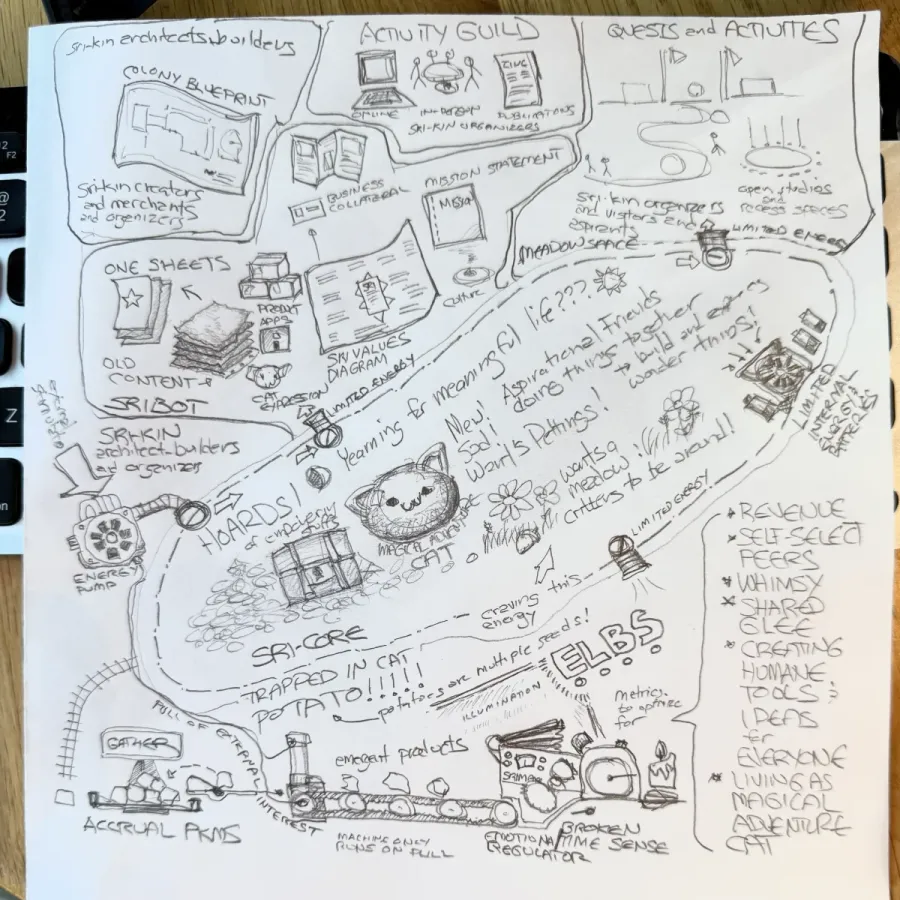 sri-kin architects.builders
COLONY BLUEPRINT
sri-kin creators
and merchants
and organizers
ACTIVITY GUILD
ZINE
ONLINE
IN-PERSON
PUBLICATIONS
SRI-KIN ORGANIZERS
QUESTS and ACTIVITIES
sri-kin organizers
and visitors and
aspirants
open studios
and
recess spaces
BUSINESS
COLLATERAL
MISSION STATEMENT
Culture
MEADOWSPACE
LIMITED ENERGY
ONE SHEETS
OLD
CONTENT
SRIBOT
PRODUCT
APPS
CAT
EXPRESSION
SRI VALUES
DIAGRAM
LIMITED ENERGY
external
stimulate
SRI-KIN
architect-builders
and organizers
ENERGY
PUMP
Yearning for meaningful life???
HOARDS!
of
New!
Sad!
Want's Pettings!
Aspirational Friends
doing things together
to build and
wonder things!
wants a
meadow!
critters to be around!
MAGICAL ADVENTURE
CAT
LIMITED
INTERNAL
ENERGY
BATTERIES
LIMITED ENERGY
craving this
energy
SRI-CORE
TRAPPED IN CAT
POTATO!!!!!
potatoes are multiple seeds!
ELBS
ILLUMINATION
metrics
to optimize
for
* REVENUE
* SELF-SELECT
PEERS
* WHIMSY
* SHARED
GLEE
* CREATING
HUMANE
TOOLS &
IDEAS
for
EVERYONE
* LIVING AS
MAGICAL
ADVENTURE
CAT
FULL OF EXTERNAL INTEREST
GATHER
ACCRUAL PKMS
emergent products
MACHINE ONLY
RUNS ON FULL
EMOTIONAL
REGULATOR
BROKEN
TIME SENSE